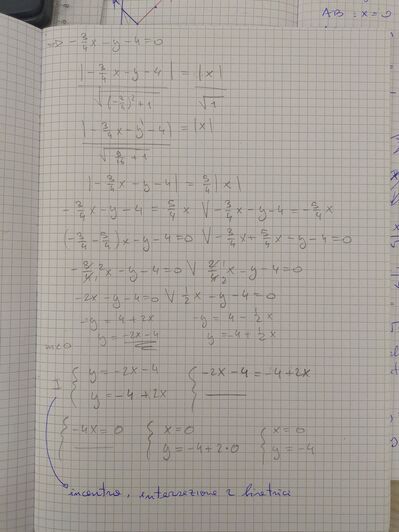 AB: x=0
=> -3/4x - y - 4 = 0
|-3/4x - y - 4| / √((-3/4)²+1) = |x| / √1
|-3/4x - y - 4| / √(9/16 + 1) = |x|
|-3/4x - y - 4| = 5/4 |x|
-3/4x - y - 4 = 5/4 x V -3/4x - y - 4 = -5/4 x
(-3/4 - 5/4)x - y - 4 = 0 V -3/4x + 5/4x - y - 4 = 0
-8/4 2x - y - 4 = 0 V 2/4 1/2 x - y - 4 = 0
-2x - y - 4 = 0 V 1/2x - y - 4 = 0
-y = 4 + 2x -y = 4 - 1/2x
m<0 y = -2x-4 y = -4 + 1/2x
I { y = -2x - 4 { -2x - 4 = -4 + 2x
y = -4 + 2x
{ -4x = 0 { x = 0 { x = 0
y = -4 + 2·0 y = -4
incentro, intersezione 2 bisettrici